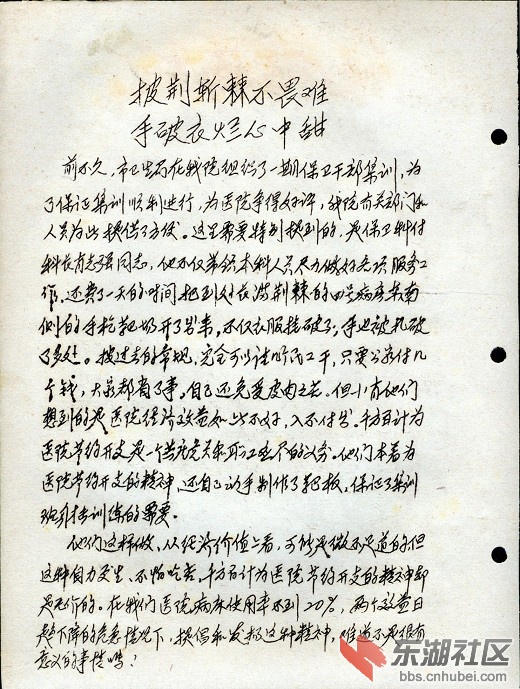 披荆斩棘不畏难
手破衣烂心中甜
前不久，市卫生局在我院组织了一期保卫干部集训，为
了保证集训顺利进行，为医院争得好评，我院有关部门和
人员为此提供了方便。这里需要特别提到的，是保卫科付
科长肖志强同志，他不仅带领本科人员尽力做好各项服务工
作，还费了一天的时间，把到处长满荆棘的四号病房东南
侧的手枪靶场开了出来，不仅衣服挂破了，手也被扎破
了多处。按过去的常规，完全可以请临民工干，只要公家付几
个钱，大家都省了事，自己还免受皮肉之苦。但小肖他们
想到的是医院经济效益如此不好，入不付出，千方百计为
医院节约开支是一个共产党员牢不可推卸的义务。他们本着为
医院节约开支的精神，还自己动手制作了靶板，保证了集训
班射击训练的需要。
他们这样做，从经济价值上看，可能是微不足道的但
这种自力更生、不怕吃苦，千方百计为医院节约开支的精神却
是无价的。在我们医院病床使用率不到70%，两个效益日
趋下降的危急情况下，提倡和发扬这种精神，难道不是很有
意义的事情吗！
东湖社区
bbs.cnhubei.com